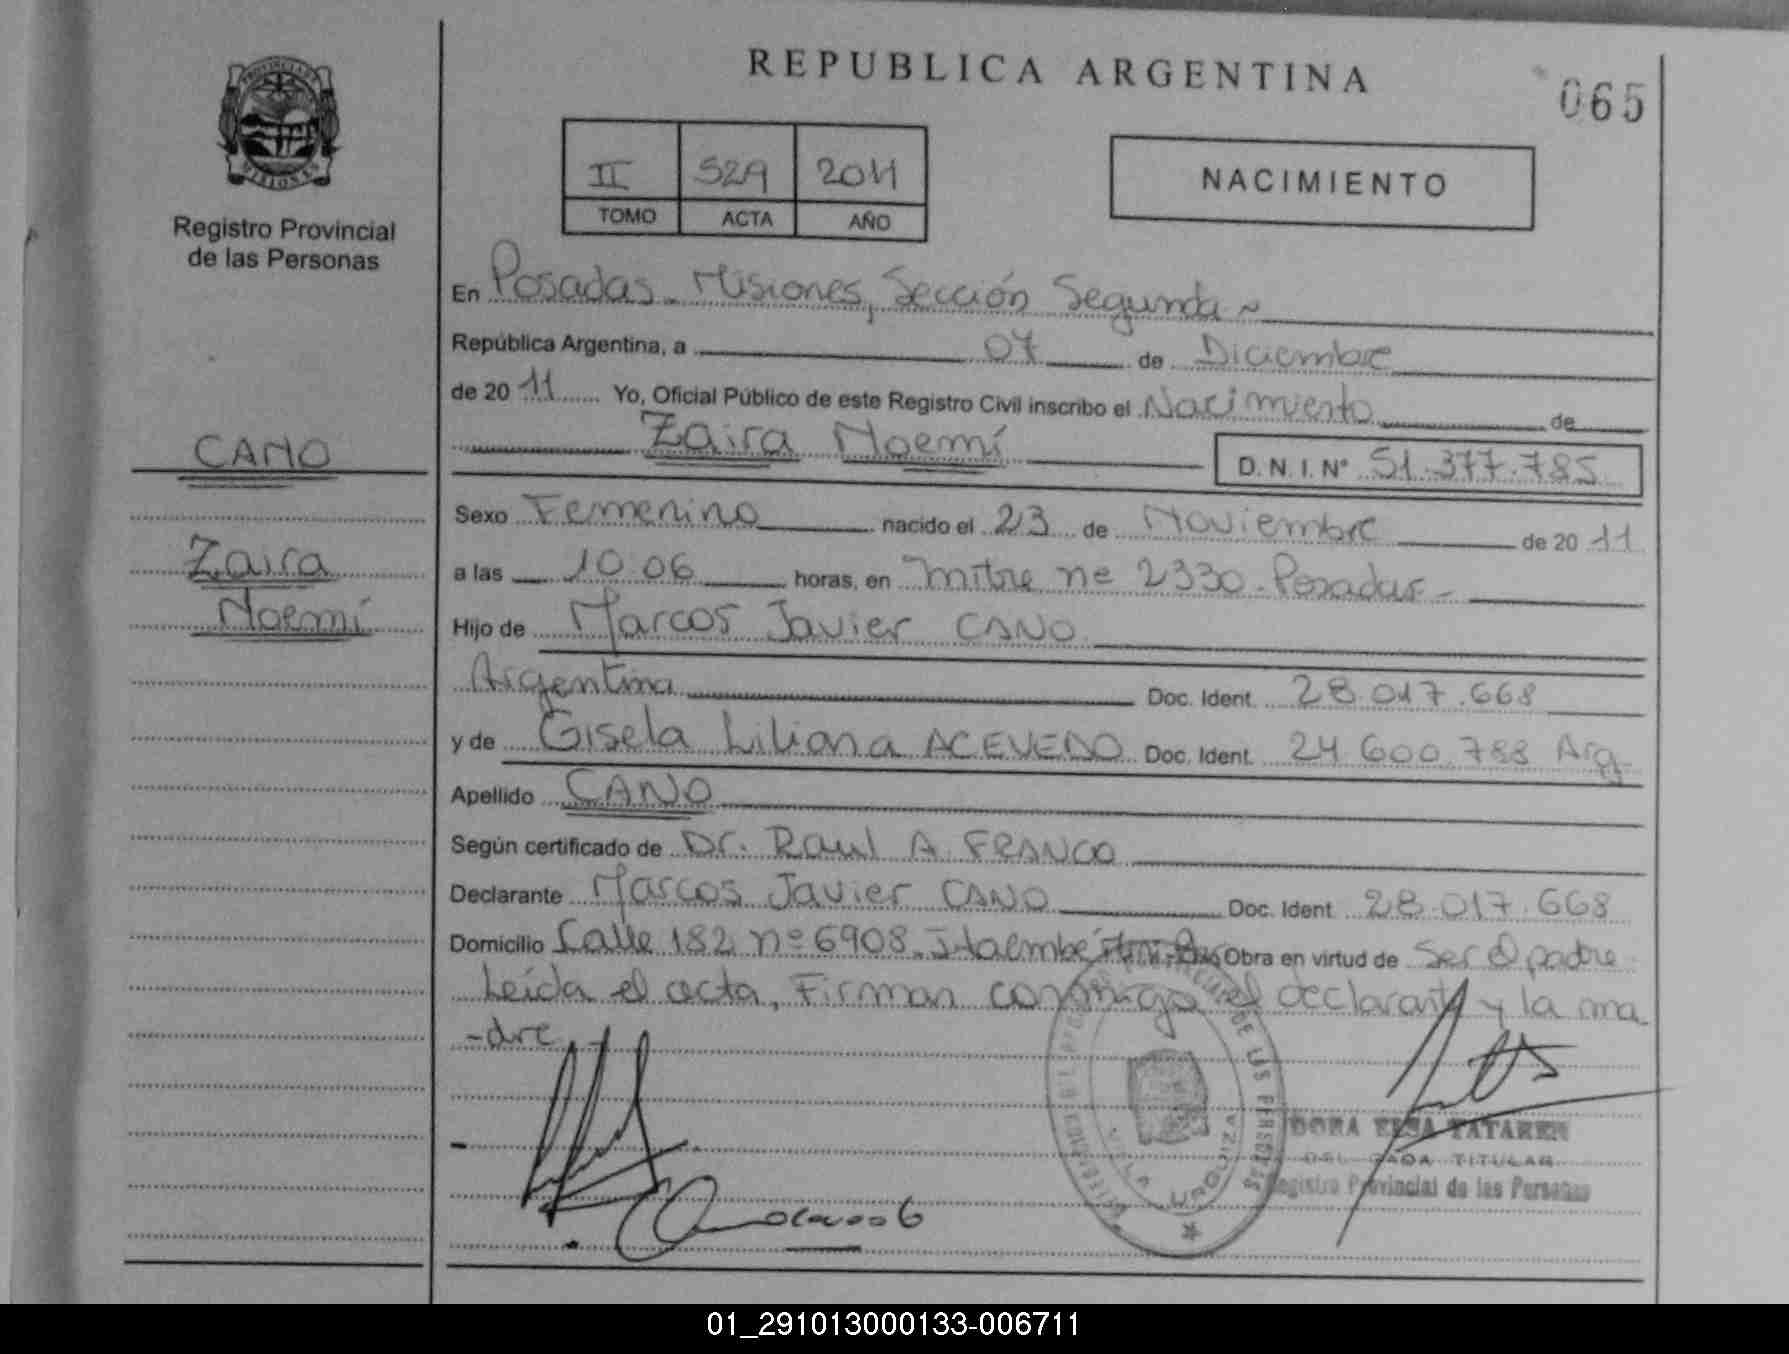 REPUBLICA ARGENTINA
065
PROVINCIA DE
MISIONES
Registro Provincial
de las Personas
II 529 2011
TOMO ACTA AÑO
NACIMIENTO
En Posadas - Misiones, Sección Segunda ~
República Argentina, a 07 de Diciembre
de 2011 Yo, Oficial Público de este Registro Civil inscribo el Nacimiento de
Zaira Noemí D.N.I. N° 51.377.785
CANO
Zaira
Noemí
Sexo Femenino nacido el 23 de Noviembre de 2011
a las 10.06 horas, en Mitre nº 2330 - Posadas -
Hijo de Marcos Javier CANO
Argentina Doc. Ident. 28.017.668
y de Gisela Liliana ACEVEDO Doc. Ident. 24.600.788 Arg
Apellido CANO
Según certificado de Dr. Raul A. FRANCO
Declarante Marcos Javier CANO Doc. Ident 28.017.668
Domicilio Calle 182 nº 6908 - Itaembé Obra en virtud de Ser el padre
Leída el acta, Firman conmigo el declarante y la ma
-dre
VILLA URQUIZA
DORA ELSA
TITULAR
Registro Provincial de las Personas
01_291013000133-006711